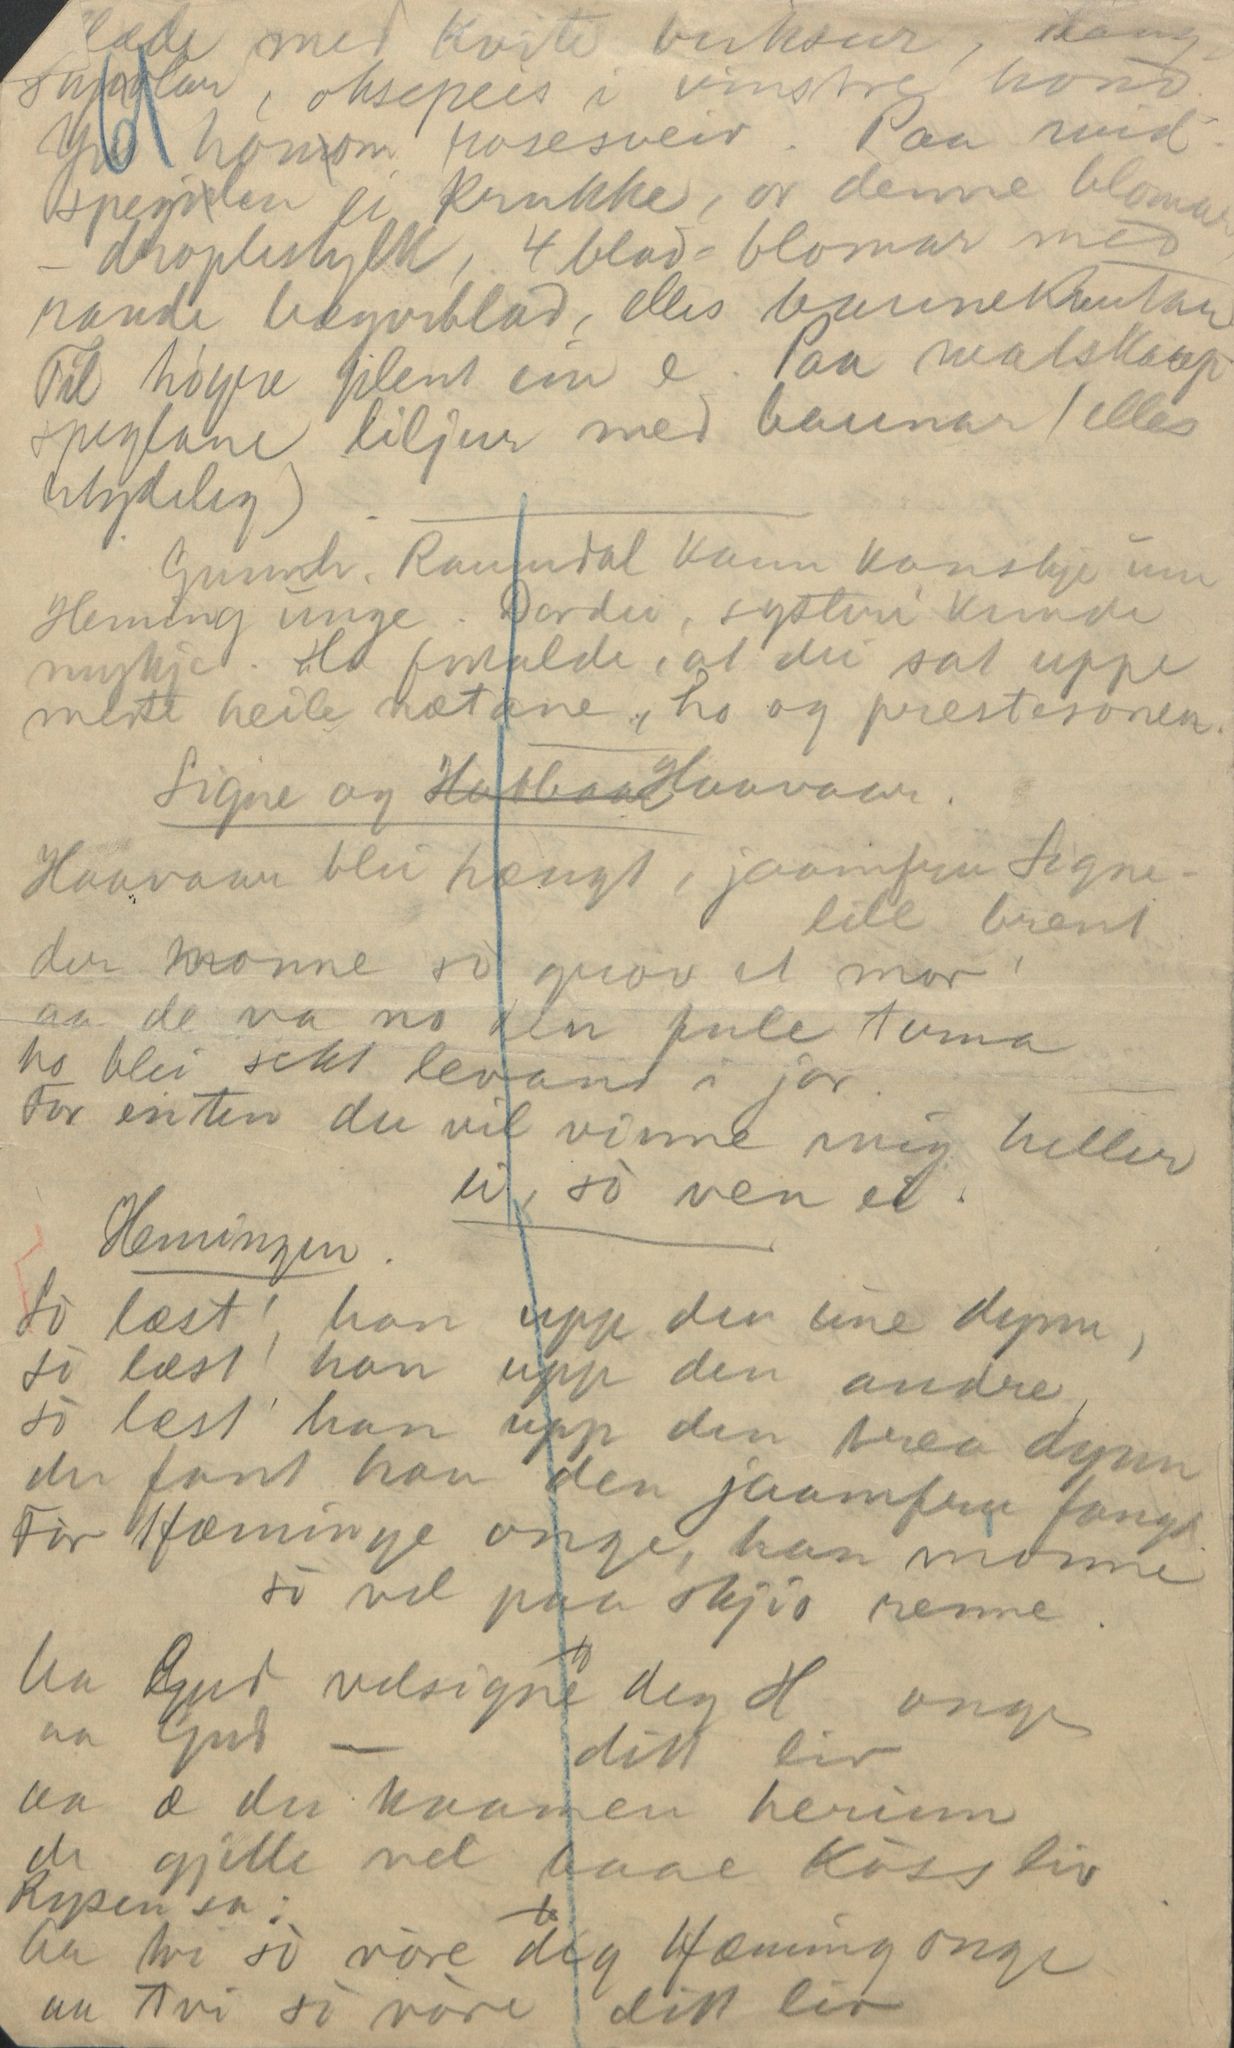 læde med kvite buksur, lang-
snjolar, oksepeis i vinstre hond.
Yvi honom rosesveiv. Paa mid-
spegilen ei krukke, or denne blomar
- dropleskylk, 4 blad-blomar med
rande bægerblad, elles baunekrutar
Til högre gilent ein e. Paa matskaap-
speglane liljur med baunar (elles
utydeleg)
Gunnh. Raundal kann kanskje um
Heming unge. Dordei, systeri kunde
mykje. Ho fortalde, at dei sat uppe
meste heile nætane, ho og prestesonen.
Signe og Habbaar Haavaar.
Haavaar blei hængt, jaamfru Signe-
lill brent
der monne so grov et mor!
aa de va no den fule tuma
ho blei sett levand i jor.
For enten du vil vinne mig heller
ei, so ven ei.
Hemingen.
So læst' han upp den eine dynn,
so læst' han upp den andre,
so læst' han upp den trea dynn
der fant han den jaamfru fangi
For Hæminge onge, han monne
so vel paa skjio renne.
Aa Gud velsigne deg H onge
aa Gud — ditt liv
aa æ du kaamen herinn
de gjelle vel baae koss liv
Rysen sa:
Aa tvi so vore deg Hæming onge
aa tvi so vore ditt liv